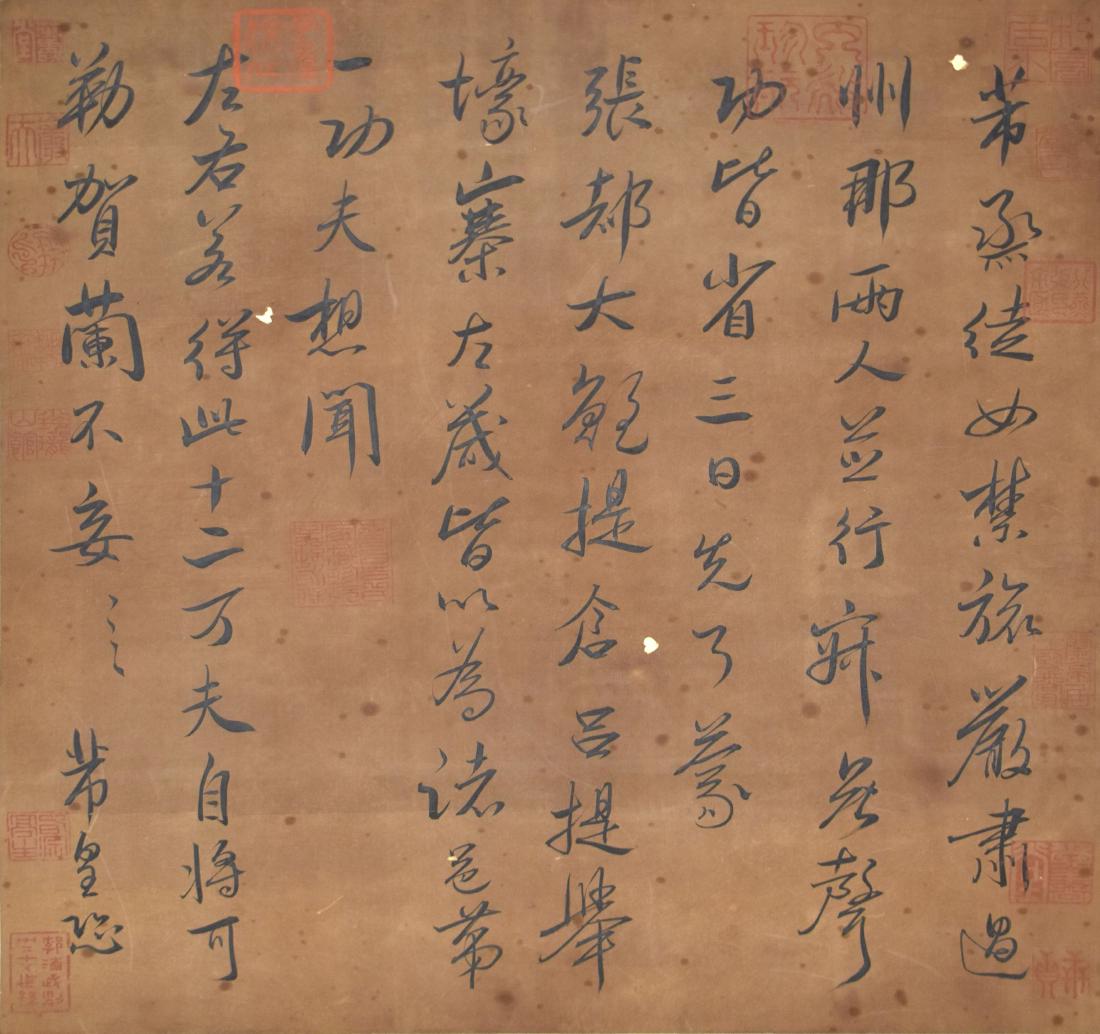 芾烝徒如禁旅嚴肅過
州郡兩人並行寂無聲
功皆省三日先了蒙
張都大鮑提倉呂提舉
壕寨左藏皆以為諸邑第
一功夫想聞
左右若得此十二万夫自將可
勒賀蘭不妄々々芾皇恐